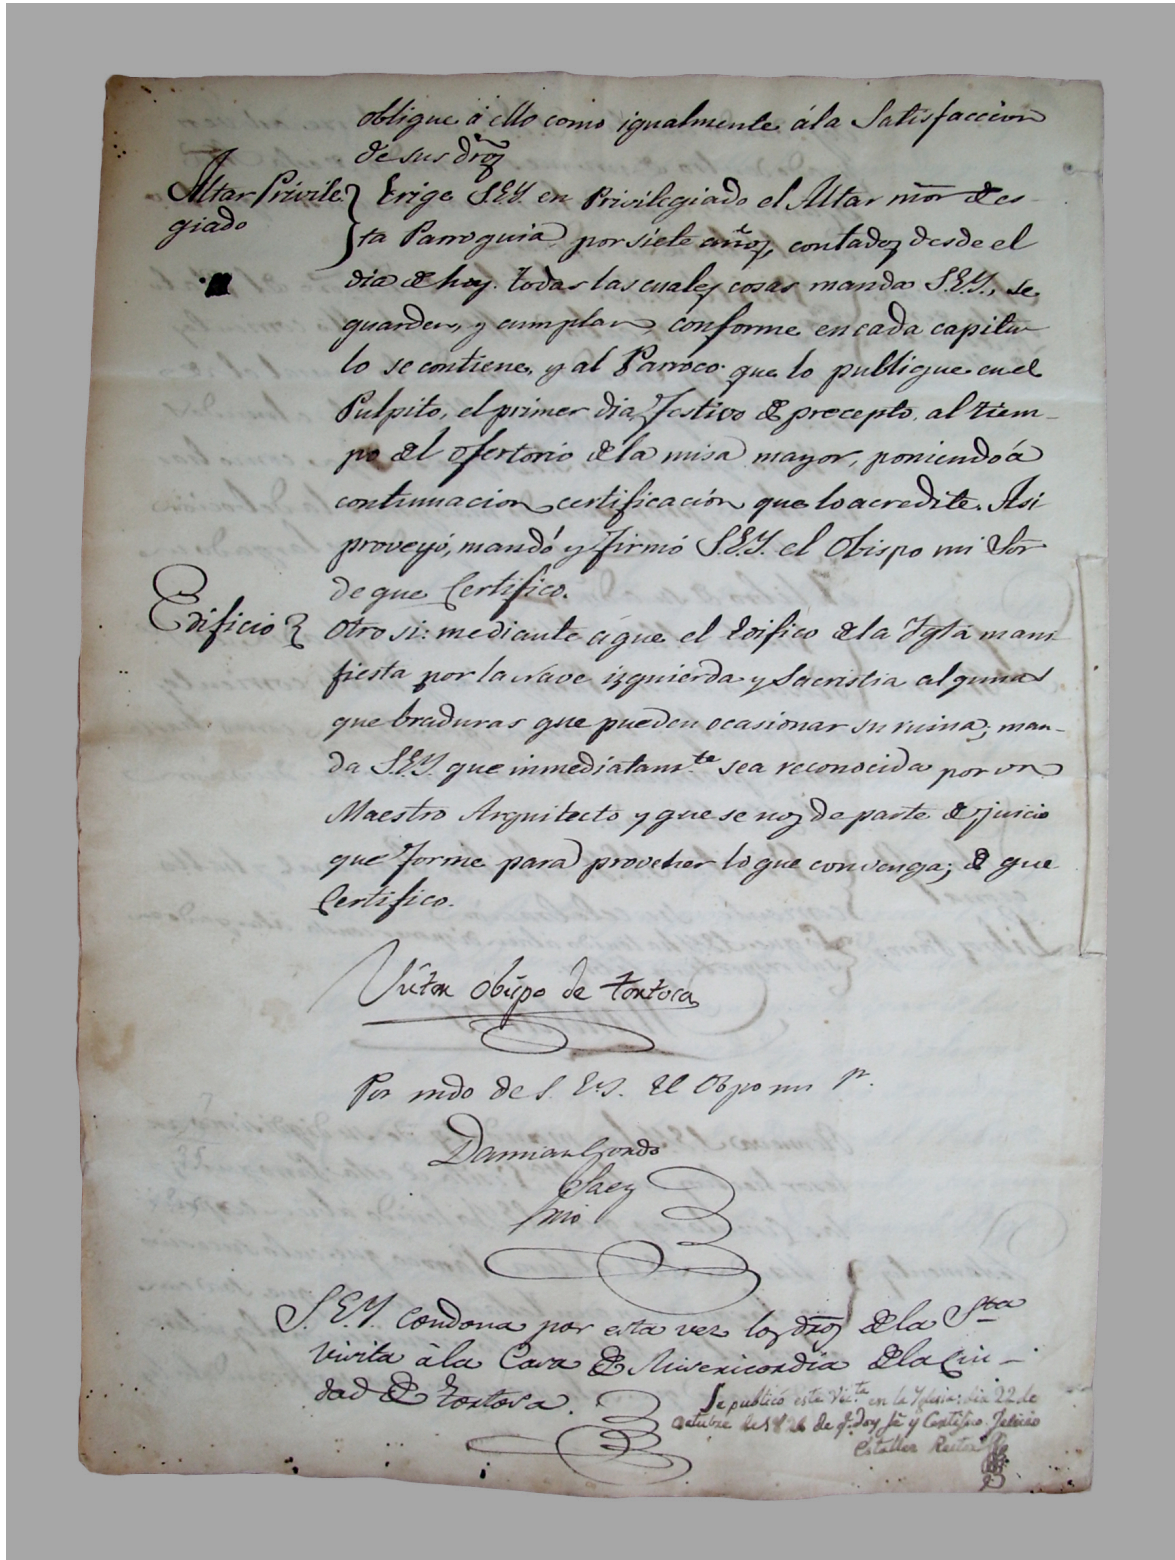 obligue á ello como igualmente á la Satisfaccion
de sus dros
Altar Privile-
giado
Erige S.E.Y. en Privilegiado el Altar mor de es-
ta Parroquia por siete años, contados desde el
dia de hoy. todas las cuales cosas manda S.E.Y., se
guarden, y cumplan conforme en cada capitu-
lo se contiene, y al Parroco que lo publique en el
Pulpito, el primer dia festivo de precepto, al tiem-
po del ofertorio de la misa mayor, poniendo á
continuacion certificación que lo acredite. Asi
proveyó, mandó y firmó S.E.Y. el Obispo mi Sor
de que Certifico.
Edificio
Otro si: mediante á que el Edifico de la Yglá mani-
fiesta por la nave izquierda y Sacristia algunas
quebraduras que pueden ocasionar su ruina; man-
da S.E.Y. que inmediatamte sea reconocida por un
Maestro Arquitecto y que se nos de parte del juicio
que forme para proveher lo que convenga; de que
Certifico.
Víctor Obispo de Tortosa
Por mdo de S. E. Y. El Obpo mi Sr.
Damian Gordo
Saez
Srio
S.E.Y. condona por esta vez los dros de la Sta
Visita á la Casa de Misericordia de la Ciu-
dad de Tortosa.
Se publicó esta Vita en la Yglesia dia 22 de
Octubre de 1826 de q. doy fe y Certifico. Felicio
Estaller Retor